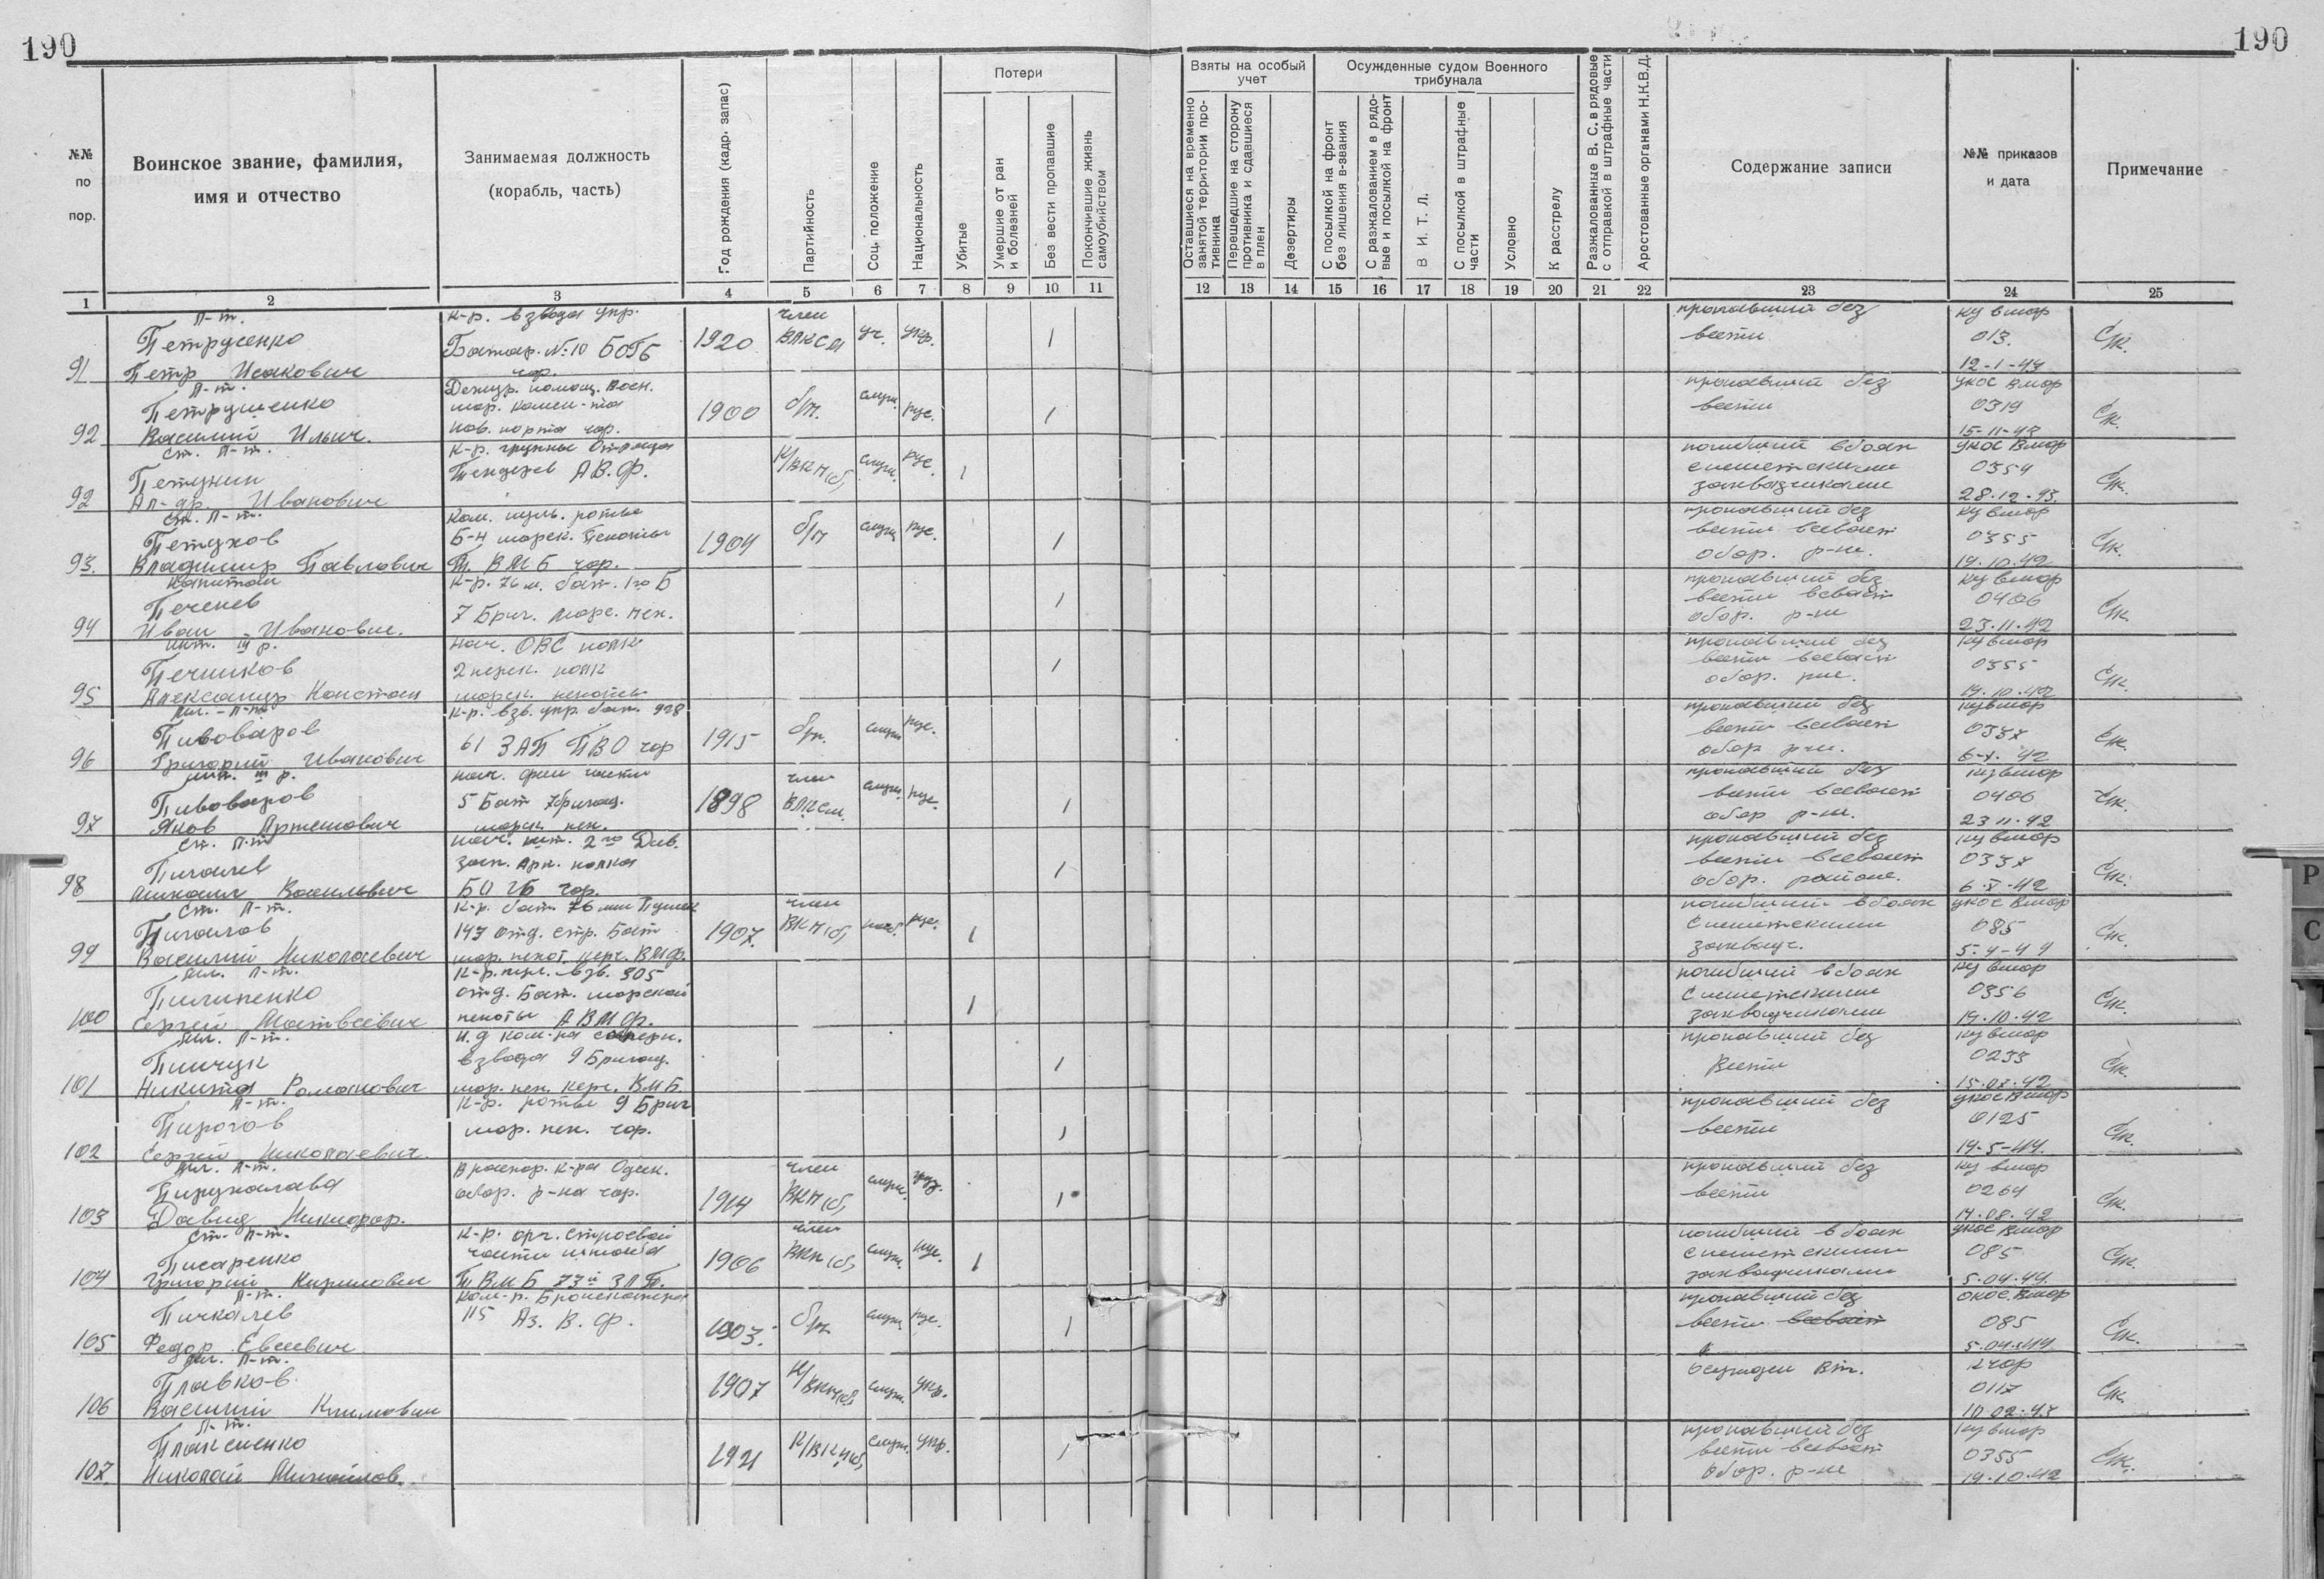 190
190
№№ по пор.
Воинское звание, фамилия, имя и отчество
Занимаемая должность (корабль, часть)
Год рождения (кадр. запас)
Партийность
Соц. положение
Национальность
Потери
Убитые
Умершие от ран и болезней
Без вести пропавшие
Покончившие жизнь самоубийством
Взяты на особый учет
Оставшиеся на временно занятой территории противника
Перешедшие на сторону противника и сдавшиеся в плен
Дезертиры
Осужденные судом Военного трибунала
С посылкой на фронт без лишения в-звания
С разжалованием в рядовые и посылкой на фронт
В И. Т. Л.
С посылкой в штрафные части
Условно
К расстрелу
Разжалованные В. С. в рядовые с отправкой в штрафные части
Арестованные органами Н.К.В.Д.
Содержание записи
№№ приказов и дата
Примечание
1 2 3 4 5 6 7 8 9 10 11 12 13 14 15 16 17 18 19 20 21 22 23 24 25
91 Л-т. Петрусенко Петр Исакович
к-р. взвода упр. Батар. №10 БОГБ чор.
1920 член ВЛКСМ уч. укр. 1
пропавший без вести
ку вмор 013. 12-1-43
92 Л-т. Петрушенко Василий Ильич.
Дежур. помощ. воен. мор. комен-та пов. порта чор.
1900 б/п. служ. рус. 1
пропавший без вести
укос Вмор 0319 15-11-43
92 Ст. Л-т. Петунин Ал-др Иванович
к-р. группы Отряда АВ.Ф.
К/ВКП(б) служ. рус. 1
погибший в боях с немецкими захватчиками
укос Вмор 0354 28.12.43.
93. Ст. Л-т. Петухов Владимир Павлович
Ком. пуль. роты Б-н морск. Пехоты ВМБ чор.
1904 б/п служ. рус. 1
пропавший без вести в севаст обор. р-не.
ку вмор 0355 19.10.42
94 Капитан Печенев Иван Иванович.
К-р. 76 м. бат. 1го Б 7 Бриг. морс. пех.
1
пропавший без вести в севаст обор. р-не
ку вмор 0406 23.11.42
95 Инт. III р. Печников Александр Констан
нач. ОВС полк 2 перек. полк морск. пехоты
1
пропавший без вести в севаст обор. рне.
ку вмор 0355 19.10.42
96 Мл. Л-т Пивоваров Григорий Иванович
к-р. взв. упр. бат. 928 61 ЗАП ПВО чор
1915 б/п. служ рус.
пропавший без вести в севаст обор р-не.
ку вмор 0337 6-X-42
97 инт. III р. Пивоваров Яков Артемович
нач. фин части 5 Бат 7 бригад. морск. пех.
1898 член служ. рус. 1
пропавший без вести в севаст обор р-не.
ку вмор 0406 23 11.42
98 Ст. Л-т Пигалев Михаил Васильевич
нач. шт. 2го Див. Арт. полка БО ГБ чор.
1
пропавший без вести в севаст обор. районе.
ку вмор 0337 6.X.42
99 Ст. Л-т. Пигалов Василий Николаевич
К-р. бат. 76 мм Пушек 143 отд. стр. Бат мор. пехот. керч. ВМФ.
1907. член ВКП(б) рус. 1
погибший в боях с немецкими захватч.
укос Вмор 085 5-4-44
100 Мл. Л-т. Пилипенко Сергей Матвеевич
К-р. пул. взв. 305 отд. Бат. морской пехоты АВМФ.
1
погибший в боях с немецкими захватчиками
ку вмор 0356 19.10.42
101 Мл. Л-т. Пинчук Никита Романович
и.д ком-ра саперн. взвода 9 Бригад. мор. пех. керч. ВМБ.
1
пропавший без Вести
ку вмор 0233 15.07.42
102 Л-т. Пирогов Сергей Николаевич.
к-р. роты 9 Бриг мор. пех. чор.
1
пропавший без вести
укос Вмор 0125 14-5-44.
103 Мл. Л-т. Давид Никифор.
В распор. к-ра Одесс. обор. р-на чор.
1914 член ВКП(б) служ. груз. 1
пропавший без вести
ку вмор 0264 14.08.42
104 Ст. Л-т. Писаренко Григорий Кирилович
К-р. орг. строевой части штаба ВМБ
1906 член ВКП(б) служ. рус. 1
погибший в боях с немецкими захватчиками
укос Вмор 085 5.04.44.
105 Л-т. Пичкалев Федор Евсеевич
ком-р. Бронекатера 115 Аз. В. Ф.
1903. б/п служ рус. 1
пропавший без вести
Вмор 085 5.04.44
106 Мл. Л-т. Плавков Василий Климович
1907 К/ВКП(б) служ. укр.
осужден Вт.
кчор 0117 02.43
107 Л-т. Плаксиенко Николай Михайлов.
1921 К/ВКП(б) служ. укр. 1
пропавший без вести в севаст обор. р-не
ку вмор 0355 19.10.42
Р
С